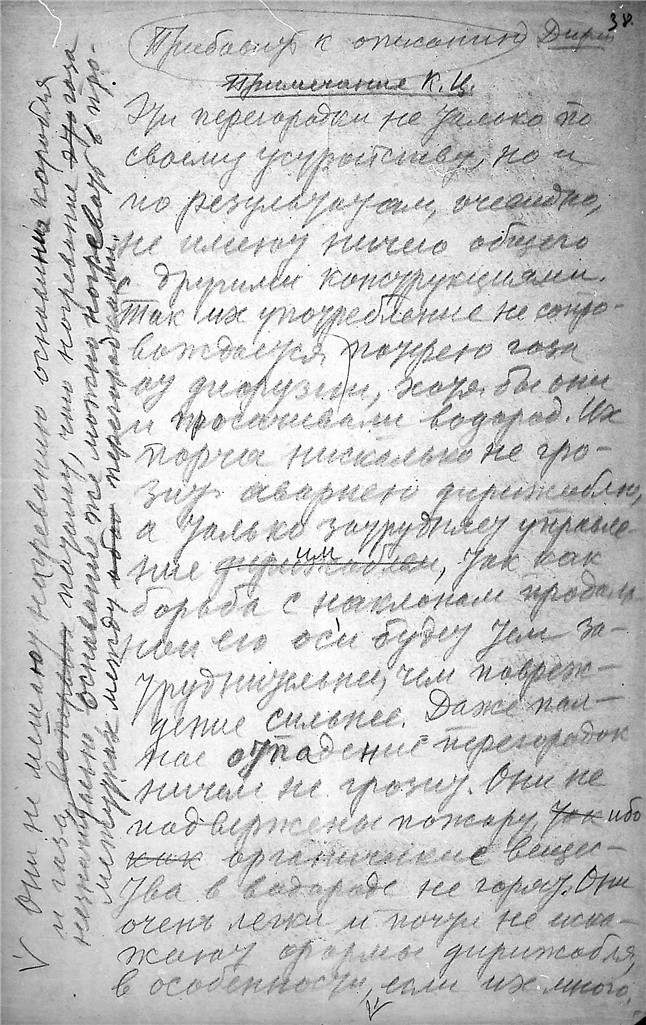 38.
Прибавить к описанию Дири
Примечание К.Ц.
Эти перегородки не только по
своему устройству, но и
по результатам, очевидно,
не имеют ничего общего
с другими конструкциями.
Так их употребление не сопро-
вождается потерею газа
от диффузии, хотя бы они
и просачивали водород. Их
порча нисколько не гро-
зит авариею дирижаблю,
а только затрудняет управле-
ние дирижаблем им, так как
борьба с наклоном продоль-
ной его оси будет тем за-
труднительнее, чем повреж-
дение сильнее. Даже пол-
ное отпадение перегородок
ничем не грозит. Они не
подвержены пожару, так ибо
как органические вещес-
тва в водороде не горят. Они
очень легки и почти не иска-
жают формы дирижабля,
в особенности, если их много.
V
V Они не мешают нагреванию основания корабля
и газа, потому, что нагревание это газа
незначительно основание же можно нагревать в про-
межутках между перегородками.